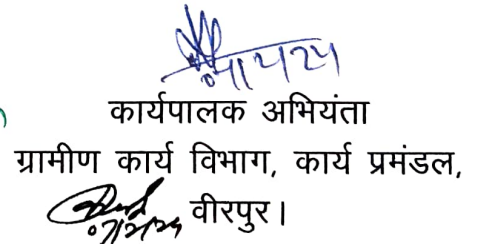 कार्यपालक अभियंता
ग्रामीण कार्य विभाग, कार्य प्रमंडल,
वीरपुर।